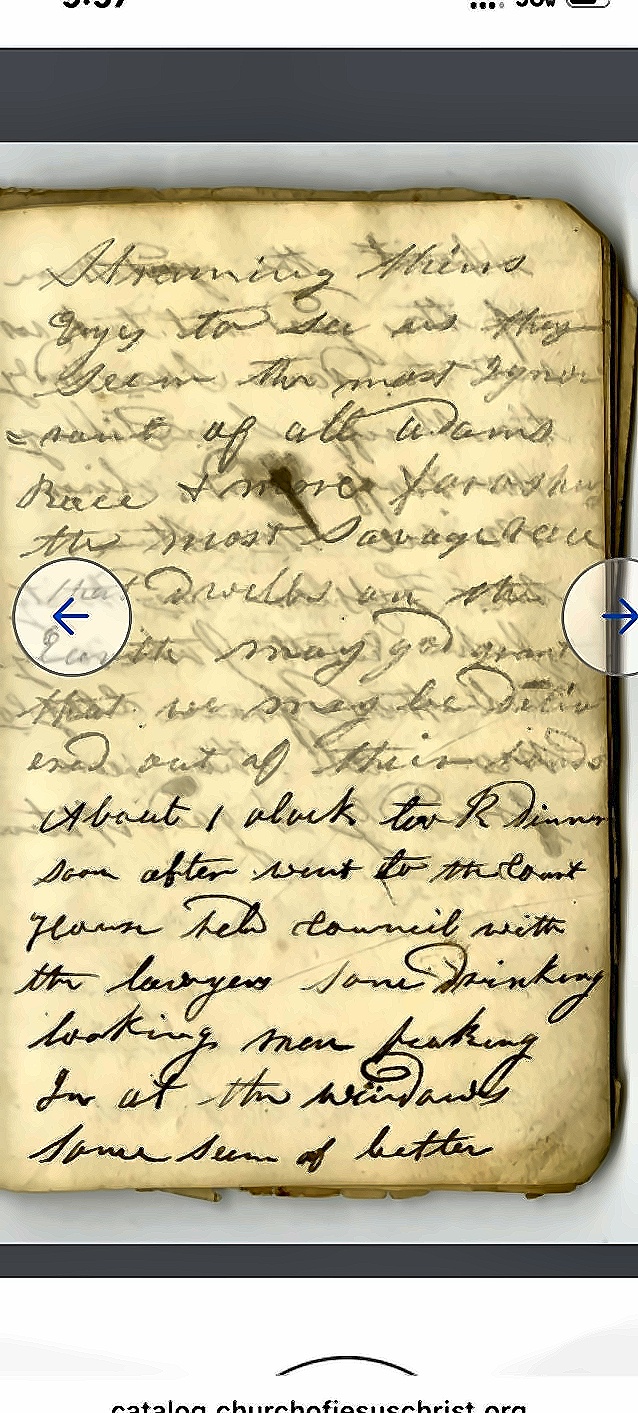 Straning thins
Eyes to see us they
Seem the most Ignor
=rant of all Adams
Race & more farochu
the most Savage race
that Dwells on the
Earth may god grant
that we may be Deliv
ered out of their hands
About 1 olock took Dinner
soon after went to the Court
House held council with
the lawyers some Drinking
looking men peaking
In at the windows
some seem of better
catalog.churchofjesuschrist.org